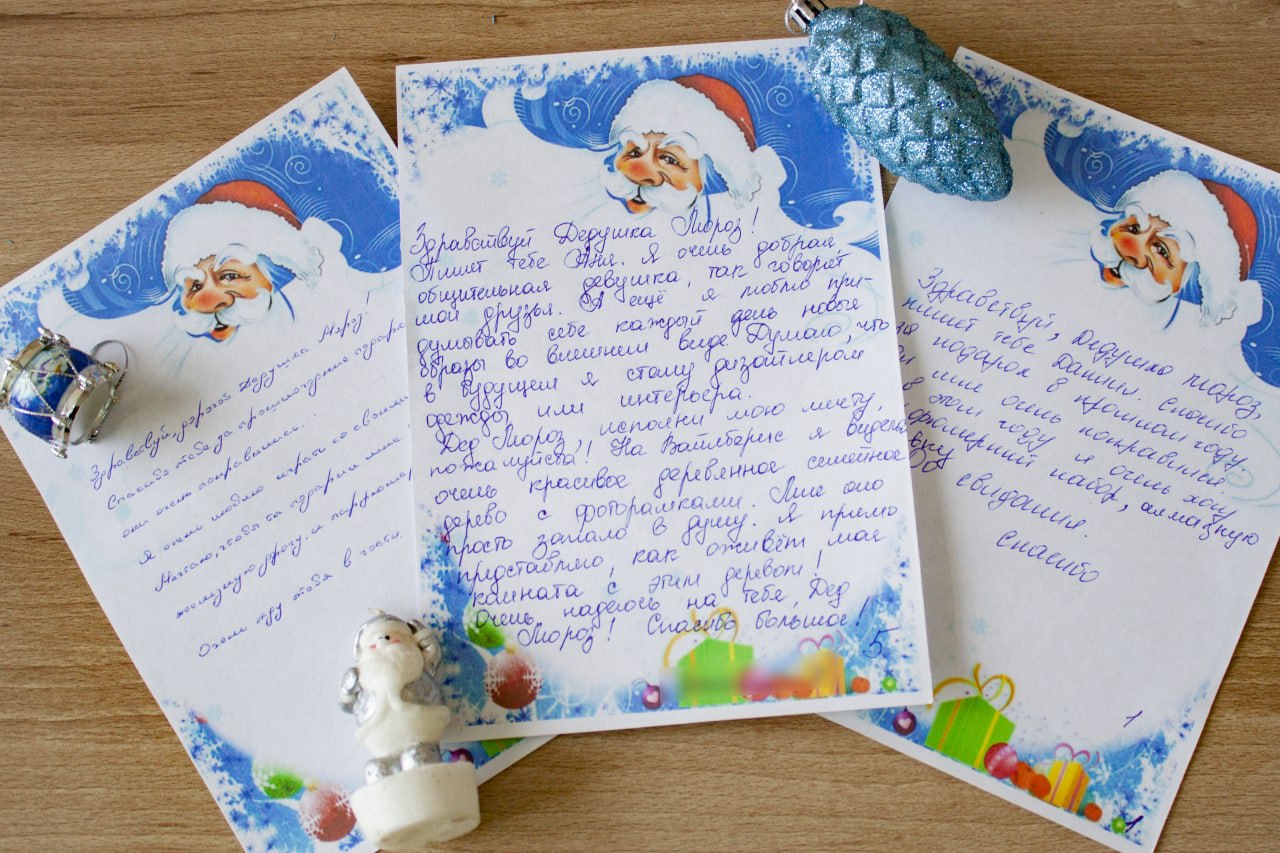 Здравствуй, дорогой Дедушка Мороз!
Спасибо тебе за прошлогодние подарки
они очень понравились.
Я очень люблю играть со своими
Мечтаю, чтобы ты подарил мне
железную дорогу и парфюмер
Очень жду тебя в гости.
Здравствуй Дедушка Мороз!
Пишет тебе Аня. Я очень добрая
общительная девушка, так говорят
мои друзья. А ещё я люблю при-
думывать себе каждый день новые
образы во внешнем виде. Думаю, что
в будущем я стану дизайнером
одежды или интерьера.
Дед Мороз, исполни мою мечту,
пожалуйста! На Вайлберис я видела
очень красивое деревянное семейное
дерево с фоторамками. Мне оно
просто запало в душу. Я прямо
представляю, как оживёт моя
комната с этим деревом!
Очень надеюсь на тебя, Дед
Мороз! Спасибо большое!
5
Здравствуй, Дедушка Мороз,
пишет тебе Данил. Спасибо
за подарок в прошлом году.
мне очень понравился.
В этом году я очень хочу
парфюмерный набор, алмазную
свидания.
Спасибо
1
1